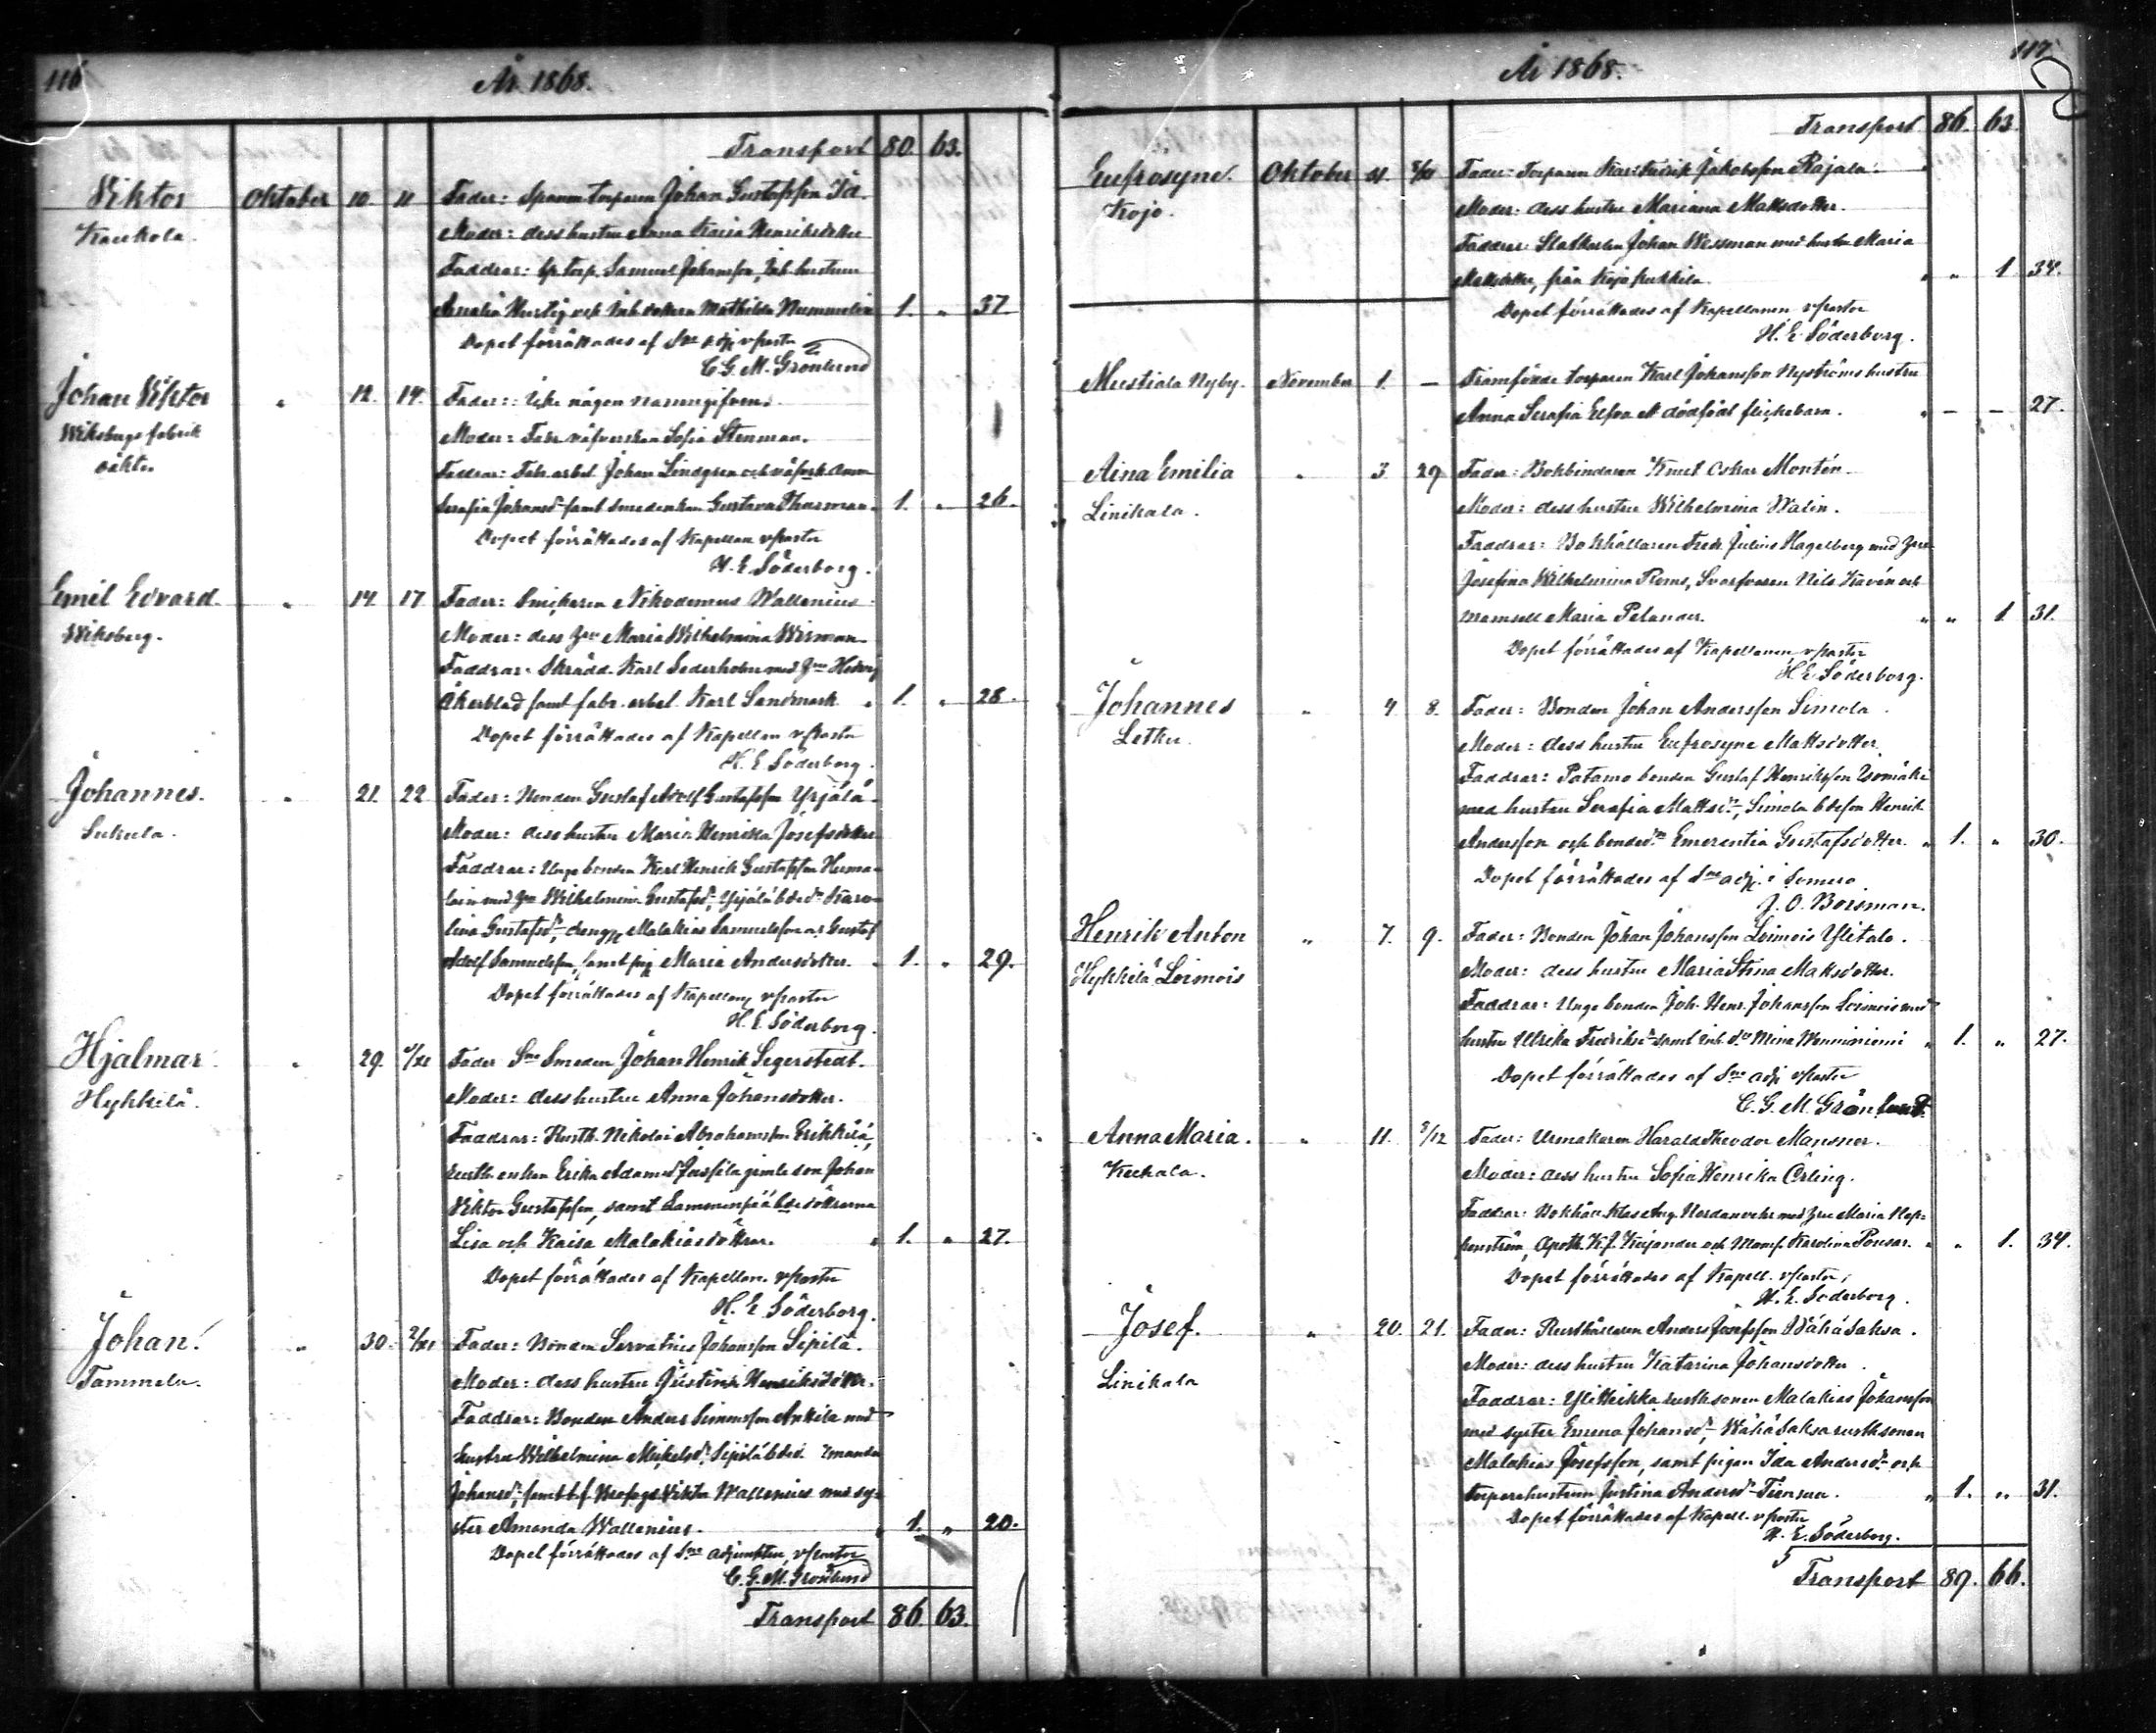 116
År 1868.
Transport 80. 63.
Viktor Oktober 10. 11 Fader: torparen Johan Gustafsson
Kaukola. Moder: dess hustru Anna Kaisa Henriksdotter
Faddrar: Sp. torp. Samuel Johansson, Inh. hustrun
Amalia Hurtig och Inh. dottern Mathilda Nummelin 1. " 37.
Dopet förrättades af Sne adj. v pastor
C. G. M. Grönlund
Johan Viktor " 12. 14. Fader: Icke någon namngifven.
Wiksbergs fabrik Moder: Fabr. väfverskan Sofia Stenman.
Faddrar: Fabr. arbet. Johan Lindgren och
Serafia Johansdr samt smedenkan Gustava Thurman. 1. " 26.
Dopet förrättades af Kapellan v pastor
H. E. Söderborg.
Emil Edvard. " 14. 17. Fader: Snickaren Nikodemus Wallenius
Wiksberg. Moder: dess hru Maria Wilhelmina Wirman.
Faddrar: Skrädd. Karl Sederholm med hru Hedvig
Åkerblad samt fabr. arbet. Karl Sandmark " 1. " 28.
Dopet förrättades af Kapellan v pastor
H. E. Söderborg.
Johannes. " 21. 22. Fader: Bonden Gustaf Adolf Gustafsson Yrjälä.
Sukula. Moder: dess hustru Maria Henrika Josefsdotter
Faddrar: Unge bonden Karl Henrik Gustafsson
med hru Wilhelmina Gustafsdr, Yrjälä bdedr Karo-
lina Gustafsdr, dreng Malakias Samuelsson o. Gustaf
Adolf Samuelsson, samt pig. Maria Andersdotter. " 1. " 29.
Dopet förrättades af Kapellan, v pastor
H. E. Söderborg.
Hjalmar " 29. 1/XI Fader Sne Smeden Johan Henrik Segerstedt.
Hykkilä. Moder: dess hustru Anna Johansdotter.
Faddrar: Rusth. Nikolai Abrahamsson Erikkilä,
rusth. enkan Erika Adamsdr Jussila son Johan
Viktor Gustafsson, samt Lamminpää bde döttrarna
Lisa och Kaisa Malakiasdöttrar. " 1. " 27.
Dopet förrättades af Kapellan. v pastor
H. E. Söderborg.
Johan. " 30. 2/XI Fader: Bonden Servatius Johansson Sipilä.
Tammela. Moder: dess hustru Justina Henriksdotter.
Faddrar: Bonden Anders Simonsson Anttila med
hustru Wilhelmina Mickelsdr, Sipilä bdedr Amanda
Johansdr, samt Viktor Wallenius med sy-
ster Amanda Wallenius. " 1. " 20.
Dopet förrättades af Sne adjunkten, v pastor
C. G. M. Grönlund
Transport 86. 63.
117.
År 1868.
Transport 86. 63.
Eufrosyne. Oktober 31. Fader: Torparen Karl Fredrik Jakobsson Rajala.
Kojo. Moder: dess hustru Mariana Mattsdotter.
Faddrar: Statkarlen Johan Wessman med hustru Maria
Mattsdotter, från Kojo " " 1 34.
Dopet förrättades af Kapellanen v pastor
H. E. Söderborg.
Mustiala Nyby. November 1. — Framfödde torparen Karl Johansson Nyströms hustru
Anna Serafia Eufva ett dödfödt flickebarn. " — — 27.
Aina Emilia " 3. 29. Fader: Bokbindaren Knut Oskar Montén.
Linikala. Moder: dess hustru Wilhelmina Walin.
Faddrar: Bokhållaren Fredr. Julius Hagelberg med hru
Josefina Wilhelmina Ploms, Svarfvaren Nils Kavén och
mamsell Maria Pelander. " " 1. 31.
Dopet förrättades af Kapellanen, v pastor
H. E. Söderborg.
Johannes " 4. 8. Fader: Bonden Johan Andersson Simola.
Letku. Moder: dess hustru Eufrosyne Mattsdotter.
Faddrar: Patamo bonden Gustaf Henriksson Isomäki
med hustru Serafia Mattsdr, Simola bdeson Henrik
Andersson och bondedr Emerentia Gustafsdotter. " 1. " 30.
Dopet förrättades af Sne adj. i Somero
J. O. Borsman.
Henrik Anton " 7. 9. Fader: Bonden Johan Johansson Loimois Ylitalo.
Hykkilä Loimois Moder: dess hustru Maria Stina Mattsdotter.
Faddrar: Unge bonden Joh. Henr. Johansson Loimois med
hustru Ulrika Fredriksdr samt Inh. dr Mina Wenninniemi " 1. " 27.
Dopet förrättades af Sne adj. v pastor
C. G. M. Grönlund.
Anna Maria. " 11. 8/12 Fader: Urmakaren Harald Theodor Mansner.
Kaukala. Moder: dess hustru Sofia Henrika Örling.
Faddrar: Bokhåll. Klas Aug. Nordanvehr med hru Maria
Apoth. K. J. Keijander och Mams. Karolina Ponsar. " " 1. 34.
Dopet förrättades af Kapell. v pastor,
H. E. Söderborg.
Josef. " 20. 21. Fader: Rusthållaren Anders Josefsson Wähä Saksa.
Linikala Moder: dess hustru Katarina Johansdotter.
Faddrar: Yli Heikka rusth. sonen Malakias Johansson
med syster Emma Johansdr, Wähä Saksa rusth. sonen
Malakias Josefsson, samt pigan Ida Andersdr och
torparehustrun Justina Andersdr Tiensuu. " 1. " 31.
Dopet förrättades af Kapell. v pastor
H. E. Söderborg.
Transport 89. 66.